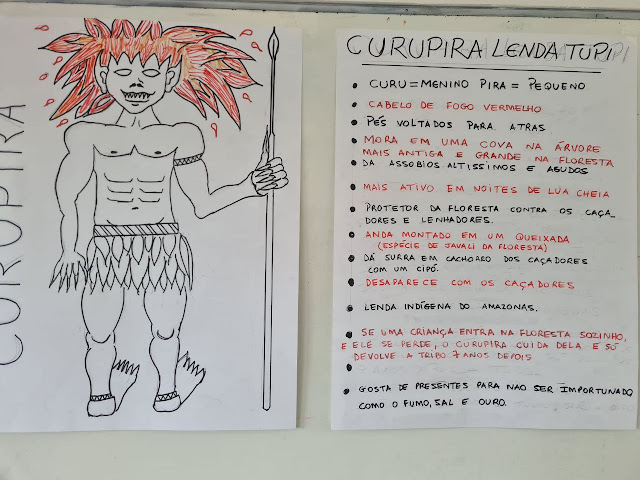 CURUPIRA
CURUPIRA LENDA TUPI
• CURU=MENINO PIRA= PEQUENO
• CABELO DE FOGO VERMELHO
• PÉS VOLTADOS PARA ATRAS
• MORA EM UMA COVA NA ÁRVORE
MAIS ANTIGA E GRANDE NA FLORESTA
• DA ASSOBIOS ALTISSIMOS E AGUDOS
• MAIS ATIVO EM NOITES DE LUA CHEIA
• PROTETOR DA FLORESTA CONTRA OS CAÇA_
DORES E LENHADORES.
• ANDA MONTADO EM UM QUEIXADA
(ESPÉCIE DE JAVALI DA FLORESTA)
• DÁ SURRA EM CACHORRO DOS CAÇADORES
COM UM CIPÓ.
• DESAPARECE COM OS CAÇADORES
• LENDA INDÍGENA DO AMAZONAS.
• SE UMA CRIANÇA ENTRA NA FLORESTA SOZINHO,
E ELE SE PERDE, O CURUPIRA CUIDA DELA E SÓ
DEVOLVE A TRIBO 7 ANOS DEPOIS
•
• GOSTA DE PRESENTES PARA NAO SER IMPORTUNADO
COMO O FUMO, SAL E OURO.